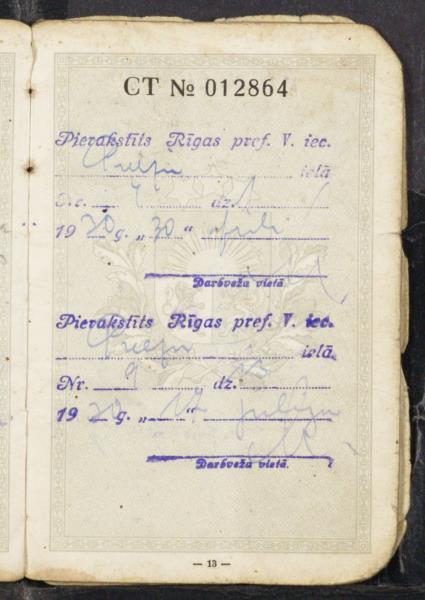 CT № 012864
Pierakstīts Rīgas pref. V. iec.
ielā
dz.
1930 g. „30" aprili
Darbveža vietā
Pierakstīts Rīgas pref. V. iec.
ielā
Nr. 9 dz.
1930 g. „17" julija
Darbveža vietā.
— 13 —